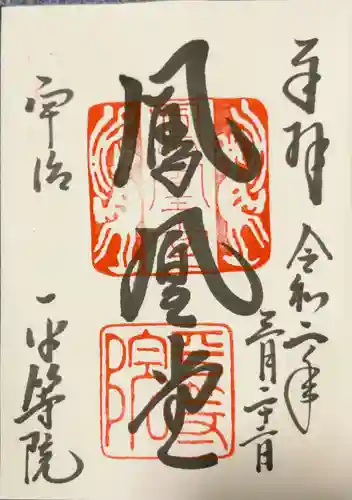 奉拝
令和二年
三月二十二日
鳳凰堂
宇治
平等院